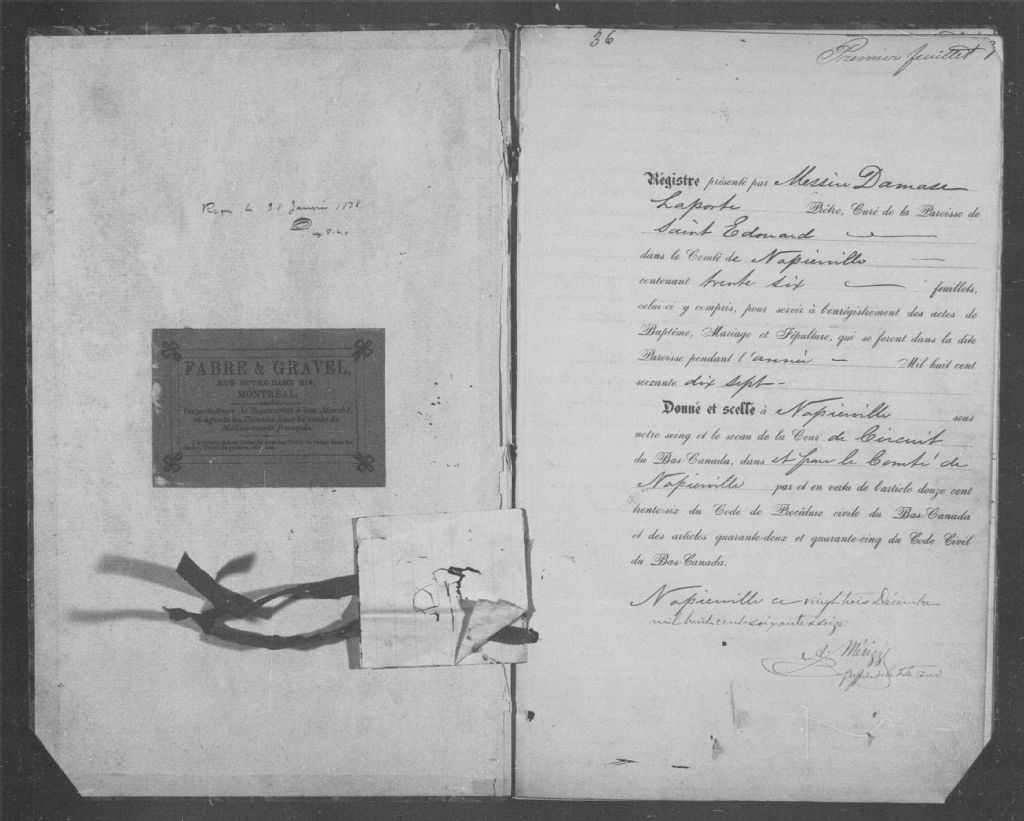 Reçu le 31 Janvier 1878
FABRE & GRAVEL,
RUE NOTRE-DAME 219,
MONTRÉAL.
Importateurs de Papeteries à bon Marché,
et agents en Canada pour la vente de
Médicaments français.
36
Premier feuillet
Régistre présenté par Messire Damase
Laporte Prêtre, Curé de la Paroisse de
Saint Edouard
dans le Comté de Napierville
contenant trente six feuillets,
celui-ci y compris, pour servir à l'enrégistrement des actes de
Baptême, Mariage et Sépulture, qui se feront dans la dite
Paroisse pendant l'année Mil huit cent
soixante dix sept
Donné et scellé à Napierville sous
notre seing et le sceau de la Cour de Circuit
du Bas-Canada, dans et pour le Comté de
Napierville par et en vertu de l'article douze cent
trente-six du Code de Procédure civile du Bas-Canada
et des articles quarante-deux et quarante-cinq du Code Civil
du Bas-Canada.
Napierville ce vingt trois Décembre
mil huit cent soixante & seize
Mérizzi